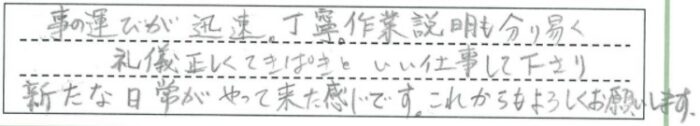 事の運びが迅速。丁寧。作業説明も分り易く
礼儀正しくてきぱきといい仕事して下さり
新たな日常がやって来た感じです。これからもよろしくお願いします。